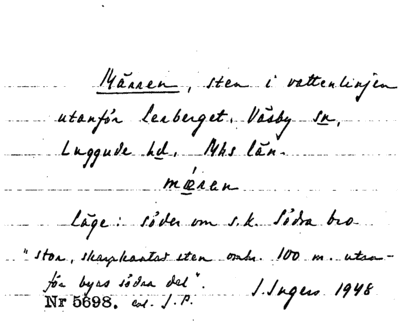 Märren, sten i vattenlinjen
utanför Lerberget. Väsby sn,
Luggude hd. Mhs län.
mǽran
läge: söder om s.k. Södra bro
"stor, skarpkantad sten omkr. 100 m. utan-
för byns södra del".
Nr 5698. enl. J.P. J. Ingers 1948